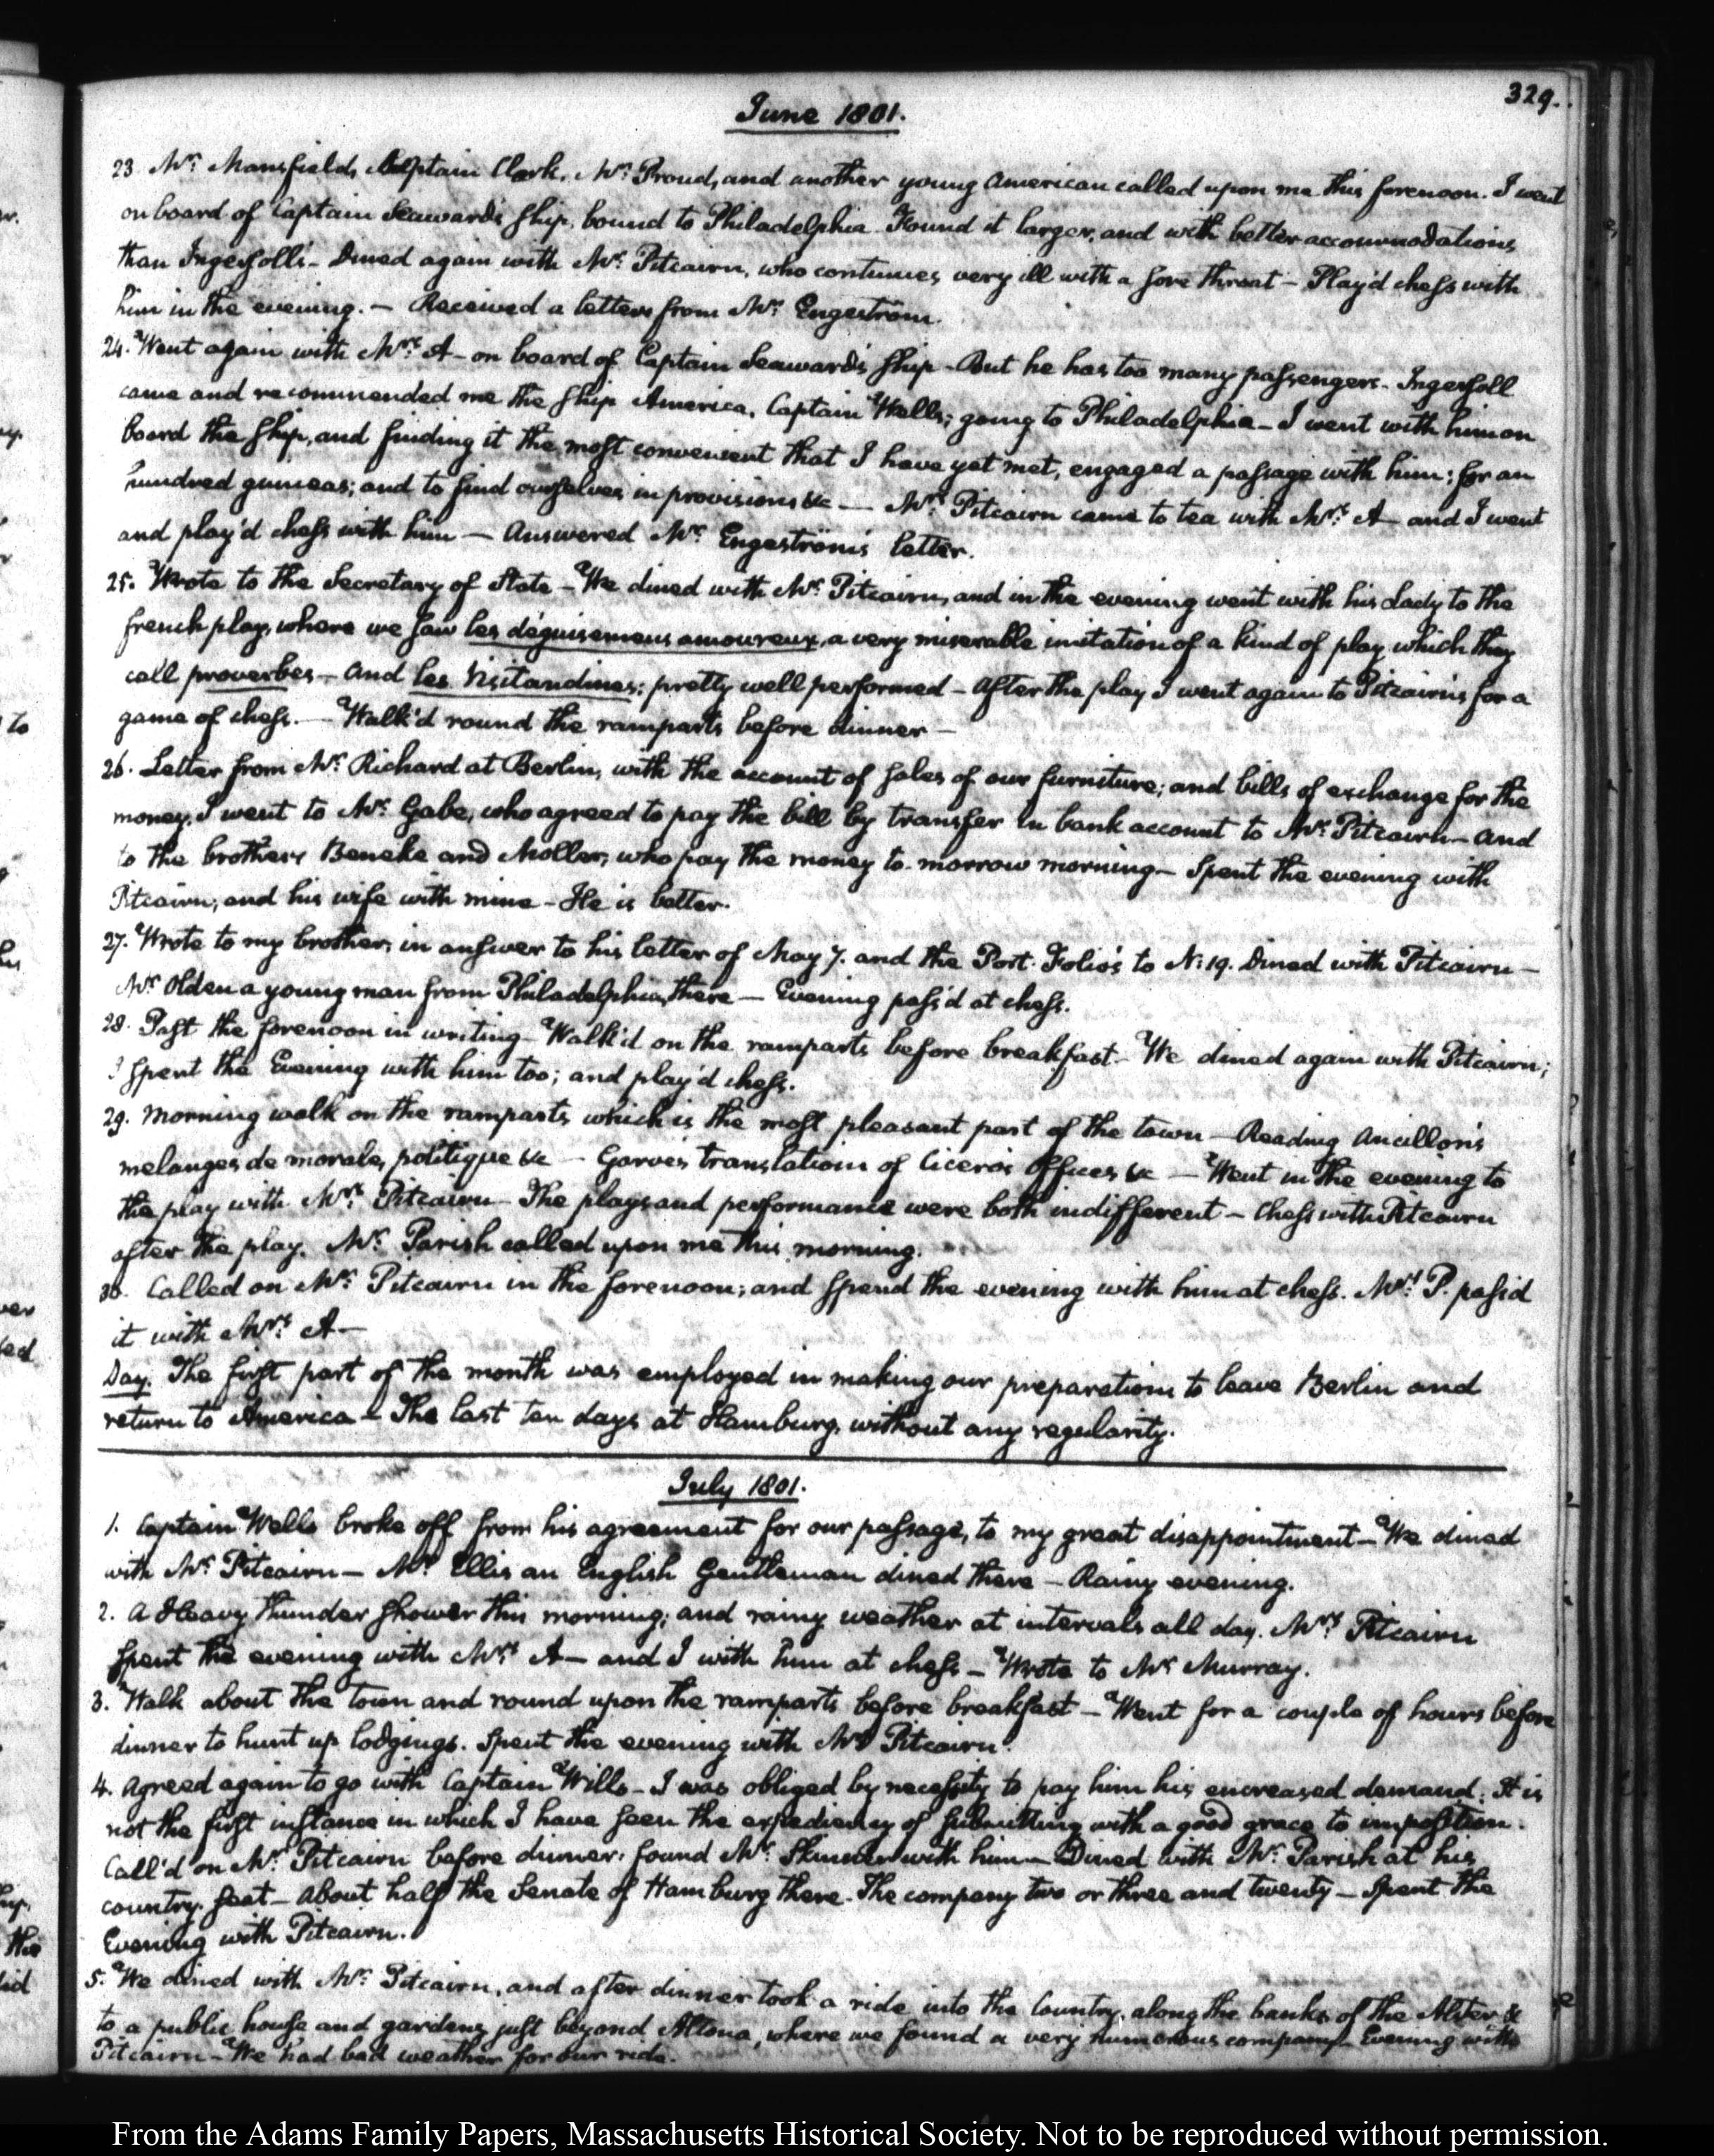 329.
June 1801.
23. Mr. Mansfield, Captain Clark, Mr. Proud, and another young American called upon me this forenoon. I went
on board of Captain Seaward's ship, bound to Philadelphia. Found it larger, and with better accommodations,
than Ingersoll's - Dined again with Mr. Pitcairn, who continues very ill with a sore throat - Play'd chess with
him in the evening. - Received a letter from Mr. Engeström.
24. Went again with Mrs. A - on board of Captain Seaward's ship - But he has too many passengers - Ingersoll
came and recommended me the ship America, Captain Wells; going to Philadelphia - I went with him on
board the ship, and finding it the most convenient that I have yet met, engaged a passage with him: for an
hundred guineas; and to find ourselves in provisions &c - Mrs. Pitcairn came to tea with Mrs. A - and I went
and play'd chess with him - Answered Mr. Engeström's letter.
25. Wrote to the Secretary of State - We dined with Mr. Pitcairn, and in the evening went with his Lady to the
french play, where we saw les déguisemens amoureux, a very miserable imitation of a kind of play which they
call proverbes - and les Visitandines; pretty well performed - After the play I went again to Pitcairn's for a
game of chess. - Walk'd round the ramparts before dinner -
26. Letter from Mr. Richard at Berlin, with the account of sales of our furniture; and bills of exchange for the
money. I went to Mr. Gabe, who agreed to pay the bill by transfer in bank account to Mr. Pitcairn - and
to the brothers Beneke and Moller, who pay the money to-morrow morning - Spent the evening with
Pitcairn, and his wife with mine - He is better.
27. Wrote to my brother, in answer to his letter of May 7. and the Port-Folio's to N: 19. Dined with Pitcairn -
Mr. Olden a young man from Philadelphia, there - Evening pass'd at chess.
28. Past the forenoon in writing - Walk'd on the ramparts before breakfast - We dined again with Pitcairn;
I spent the Evening with him too; and play'd chess.
29. Morning walk on the ramparts which is the most pleasant part of the town - Reading Ancillon's
melanges de morale, politique &c - Garve's translation of Cicero's Offices &c - Went in the evening to
the play with Mrs. Pitcairn - The plays and performance were both indifferent - Chess with Pitcairn
after the play. Mr. Parish called upon me this morning.
30. Called on Mr. Pitcairn in the forenoon; and spend the evening with him at chess. Mrs. P. pass'd
it with Mrs. A -
Day. The first part of the month was employed in making our preparations to leave Berlin and
return to America - The last ten days at Hamburg, without any regularity.
July 1801.
1. Captain Wells broke off from his agreement for our passage, to my great disappointment - We dined
with Mr. Pitcairn - Mr. Ellis an English Gentleman dined there - Rainy evening.
2. A Heavy thunder shower this morning; and rainy weather at intervals all day. Mrs. Pitcairn
spent the evening with Mrs. A - and I with him at chess - Wrote to Mr. Murray.
3. Walk about the town and round upon the ramparts before breakfast - Went for a couple of hours before
dinner to hunt up lodgings. Spent the evening with Mr. Pitcairn.
4. Agreed again to go with Captain Wills - I was obliged by necessity to pay him his encreased demand. It is
not the first instance in which I have seen the expediency of submitting with a good grace to imposition.
Call'd on Mr. Pitcairn before dinner: found Mr. Skinner with him - Dined with Mr. Parish at his
country-seat - About half the Senate of Hamburg there - The company two or three and twenty - Spent the
Evening with Pitcairn.
5. We dined with Mr. Pitcairn, and after dinner took a ride into the Country, along the banks of the Alster &
to a public house and gardens just beyond Altona, where we found a very numerous company - Evening with
Pitcairn - We had bad weather for our ride.
From the Adams Family Papers, Massachusetts Historical Society. Not to be reproduced without permission.